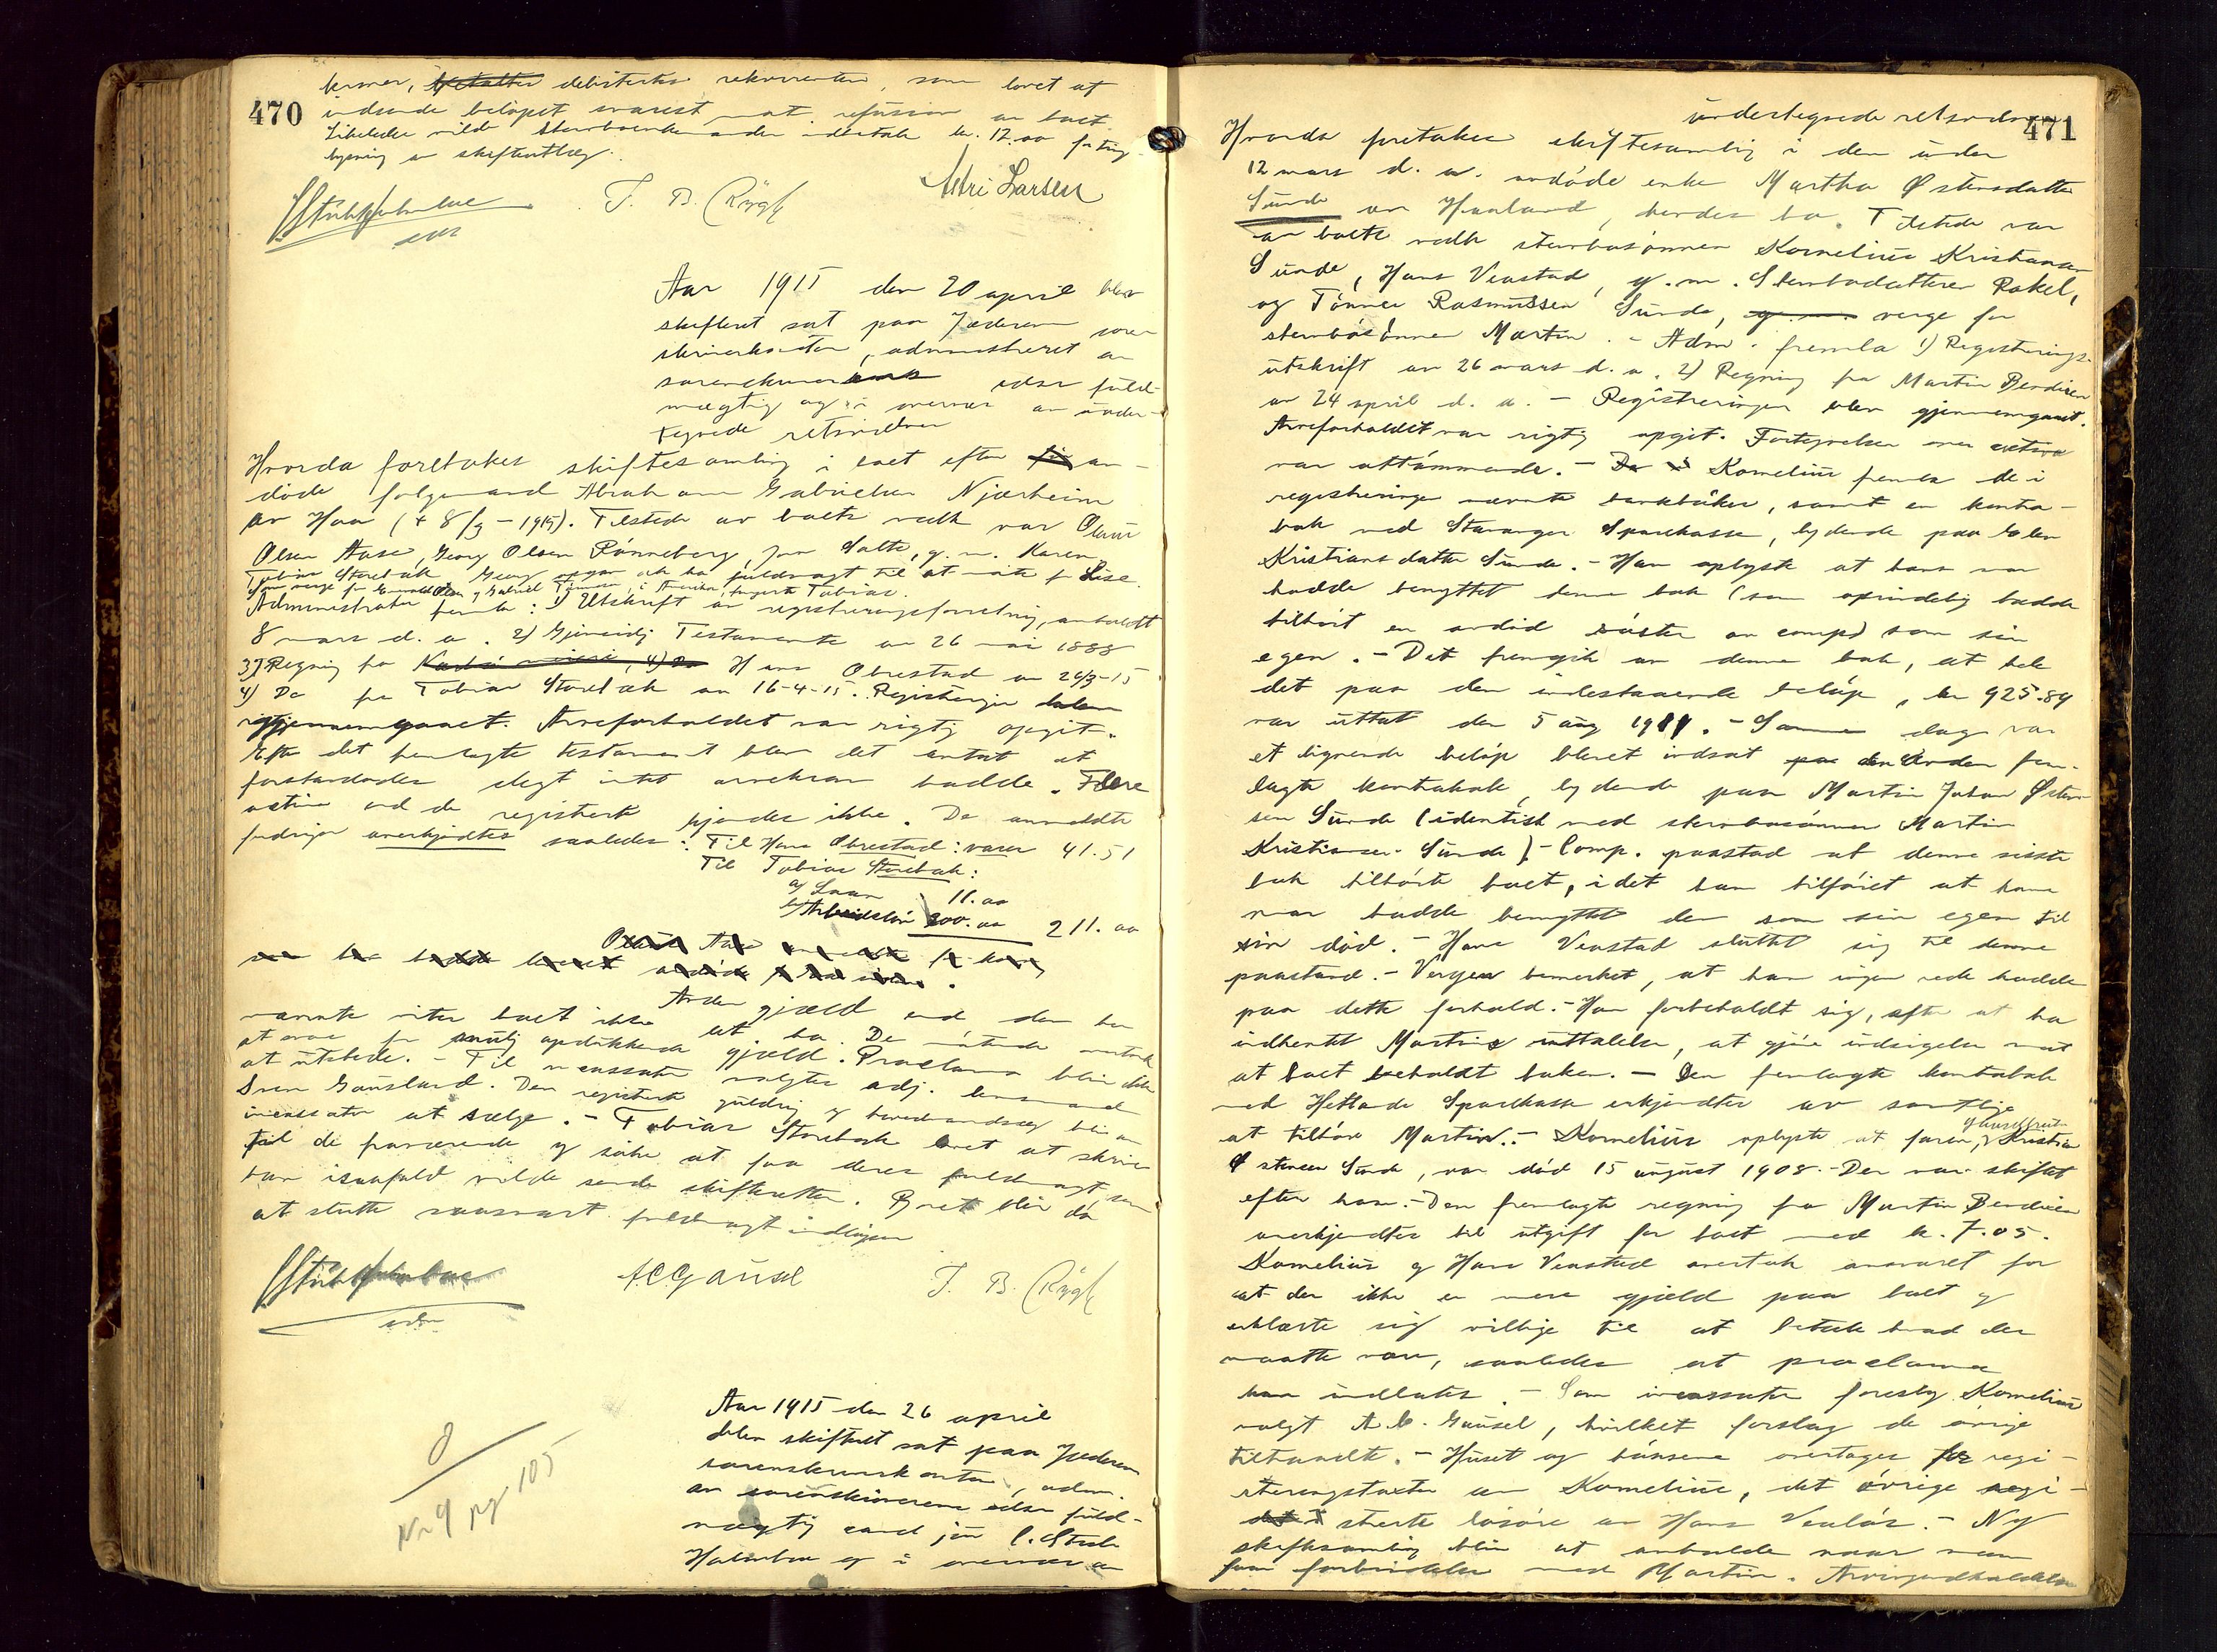 470
debiterte rekvirenten, som lovet at
indsende beløpet snarest mot refusion av boet
Likeledes vilde indbetale kr. 12.00 for ting-
lysning av skifteutlæg.
T. B. Rygh
Adri Larsen
Aar 1915 den 20 april blev
skifteret sat paa Jæderen soren-
skriverkontor, administreret av
sorenskriverens edsv fuld-
mægtig og i overvær av under-
tegnede retsvidner
Hvorda foretokes skiftesamling i boet efter an-
døde folgemand Abraham Gabrielsen Njærheim
av Haa (+ 8/3 - 1915). Tilstede av boets vedk var Olaus
Olsen Aase, Georg Olsen Rønneberg, Jon Salte, g. m. Karen,
Tobias Storebak. Georg opgav ikke ha fuldmagt til at møte for Lise.
Som verge for i Amerika, fungerte Tobias.
Administrator fremla: 1) Utskrift av registreringsforretning, avholdt
8 mars d. a. 2) Gjensidig Testamente av 26 mai 1888
3) Regning fra Hans Obrestad av 26/3-15
4) Do fra Tobias Storebak av 16-4-15. Registeringen blev
gjennemgaaet. Arveforholdet var rigtig opgit.
Efter det fremlagte testament blev det antat at
forstandoder slegt intet arvekrav hadde. Flere
activa end de registrerte kjendes ikke. De anmeldte
fordringer anerkjendtes saaledes: Til Hans Obrestad: varer 41.51
Til Tobias Storebak:
a) Laan 11.00
b) Arbeidsløn 200.00 211.00
Anden gjæld end den her
nævnte viter boet ikke at ha. De møtende overtok
at svare for mulig opdukkende gjæld. Proclama blir ikke
at utstede. - Til incassator valgtes adj. lensmand
Sven Gausland. Den registrerte gjældrig og blir av
incassator at sælge. - Tobias Storebak lovet at skrive
til de fraværende og søke at faa deres fuldmagt, som
han isaafald vilde sende skifteretten. Boet blir da
at slutte saasnart fuldmagt indløper
A C Gausel
T. B. Rygh
0
Nr 4 pg 105
Aar 1915 den 26 april
blev skifteret sat paa Jæderen
sorenskriverkontor, adm.
av sorenskriverens edsv fuld-
mægtig cand jur C. Stub
Holmboe og i overvær av
471
undertegnede retsvidner
Hvorda foretokes skiftesamling i den under
12 mars d. a. avdøde enke Martha Østensdatter
Sunde av Haaland, hendes bo. Tilstede var
av boets vedk stervbosønnen Kornelius Kristiansen
Sunde, Hans Venstad, g. m. Stervbodatteren Rakel,
og Tønnes Rasmussen Sunde, verge for
stervbosønnen Martin. - Adm. fremla 1) Registrerings-
utskrift av 26 mars d. a. 2) Regning fra Martin Bendiksen
av 24 april d. a. - Registreringen blev gjennemgaaet.
Arveforholdet var rigtig opgit. Fortegnelsen over activa
var uttømmende. - Kornelius fremla de i
registreringen nævnte bankbøker, samt en kontra-
bok med Stavanger Sparekasse, lydende paa
Kristiansdatter Sunde. - Han oplyste at hans mor
hadde benyttet denne bok (som oprindelig hadde
tilhørt en avdød søster av comp) som sin
egen. - Det fremgik av denne bok, at hele
det paa den indestaaende beløp, kr 925.89
var uttat den 5 aug 1911. - Samme dag var
et lignende beløp blevet indsat paa den anden frem-
lagte kontrabok, lydende paa Martin Johan Østen-
sen Sunde (identisk med stervbosønnen Martin
Kristiansen Sunde). - Comp. paastod at denne sisste
bok tilhørte boet, idet han tilføiet at hans
mor hadde benyttet den som sin egen til
sin død. - Hans Venstad sluttet sig til denne
paastand. - Vergen bemerket, at han ingen rede hadde
paa dette forhold. - Han forbeholdt sig, efter at ha
indhentet Martins uttalelse, at gjøre indsigelse mot
at boet beholdt boken. - Den fremlagte kontrabok
med Hetlands Sparekasse erkjendtes av samtlige
at tilhøre Martin. - Kornelius oplyste at faren, Kristian
Østensen Sunde, var død 15 august 1908. - Der var skiftet
efter ham. - Den fremlagte regning fra Martin Bendiksen
anerkjendtes til utgift for boet med kr. 7.05.
Kornelius og Hans Venstad overtok ansvaret for
at der ikke er mere gjæld paa boet og
erklærte sig villige til at betale hvad der
maatte være, saaledes at proclama
kan undlates. - Som incassator foreslog Kornelius
valgt A. C. Gausel, hvilket forslag de øvrige
tiltraadte. - Huset og bøkene overtages for regi-
streringstaxten av Kornelius, det øvrige regi-
sterte løsøre av Hans Venstad. - Ny
skiftesamling blir at avholde naar man
faar forbindelse med Martin.